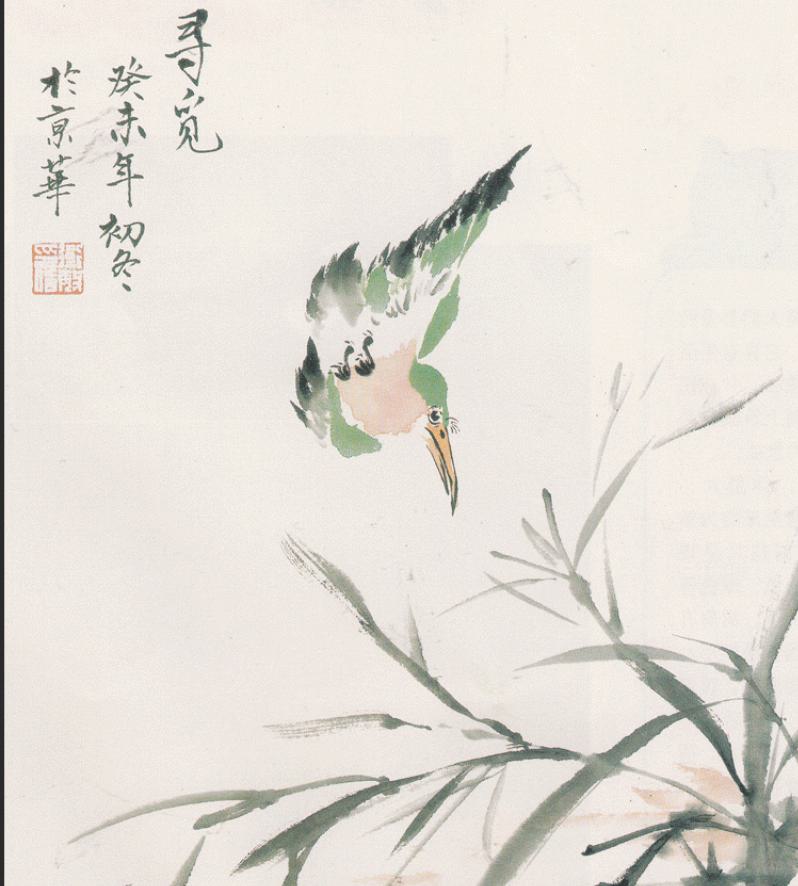 寻觅
癸未年初冬
於京華